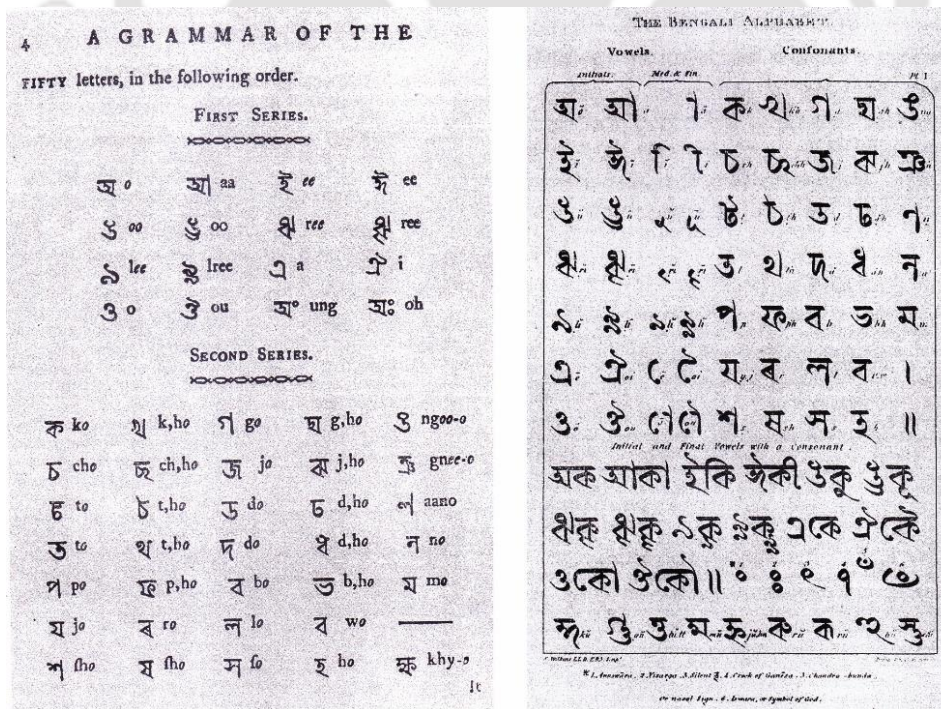 4 A GRAMMAR OF THE
FIFTY letters, in the following order.
FIRST SERIES.
অ o আ aa ই ee ঈ ee
উ oo ঊ oo ঋ ree ৠ ree
ঌ lee ৡ lree এ a ঐ i
ও o ঔ ou অং ung অঃ oh
SECOND SERIES.
ক ko খ k,ho গ go ঘ g,ho ঙ ngoo-o
চ cho ছ ch,ho জ jo ঝ j,ho ঞ gnee-o
ট to ঠ t,ho ড do ঢ d,ho ণ aano
ত to থ t,ho দ do ধ d,ho ন no
প po ফ p,ho ব bo ভ b,ho ম mo
য jo ৰ ro ল lo ব wo ——
শ ſho ষ ſho স ſo হ ho ক্ষ khy-o
It
THE BENGALI ALPHABET.
Vowels. Conſonants.
Initials. Med. & Fin. Pl. I
অ আ া ক খ গ ঘ ঙ
ই ঈ ি ী চ ছ জ ঝ ঞ
উ ঊ ু ূ ট ঠ ড ঢ ণ
ঋ ৠ ৃ ৄ ত থ দ ধ ন
ঌ ৡ ৢ ৣ প ফ ব ভ ম
এ ঐ ে ৈ য ৰ ল ব ।
ও ঔ ো ৌ শ ষ স হ ॥
Initial and Final Vowels with a Consonant.
অক আকা ইকি ঈকী উকু ঊকূ
ঋকৃ ৠকৄ ঌকৢ ৡকৣ একে ঐকৈ
ওকো ঔকৌ॥